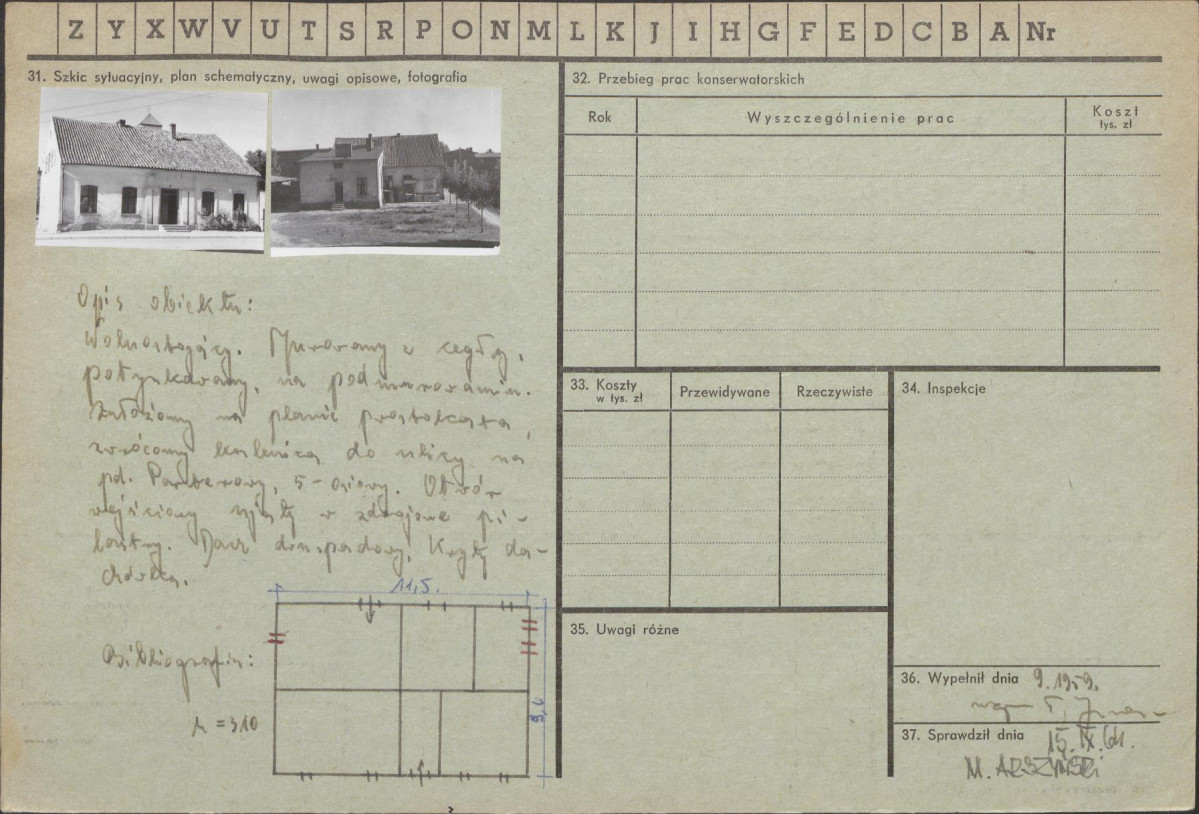 Z Y X W V U T S R P O N M L K J I H G F E D C B A Nr
31. Szkic sytuacyjny, plan schematyczny, uwagi opisowe, fotografia
Opis obiektu:
Wolnostojący. Murowany z cegły,
potynkowany, na podmurowaniu.
Założony na planie prostokąta,
zwrócony kalenicą do ulicy na
pd. Parterowy, 5-osiowy. Otwór
wejściowy ujęty w zdwojone pi-
lastry. Dach dwuspadowy. Kryty da-
chówką.
11,5.
Bibliografia:
= 310
32. Przebieg prac konserwatorskich
Rok
Wyszczególnienie prac
Koszt
tys. zł
33. Koszty
w tys. zł
Przewidywane
Rzeczywiste
34. Inspekcje
35. Uwagi różne
36. Wypełnił dnia 9.1959.
37. Sprawdził dnia 15.IX.61.
M. ARSZYŃSKI